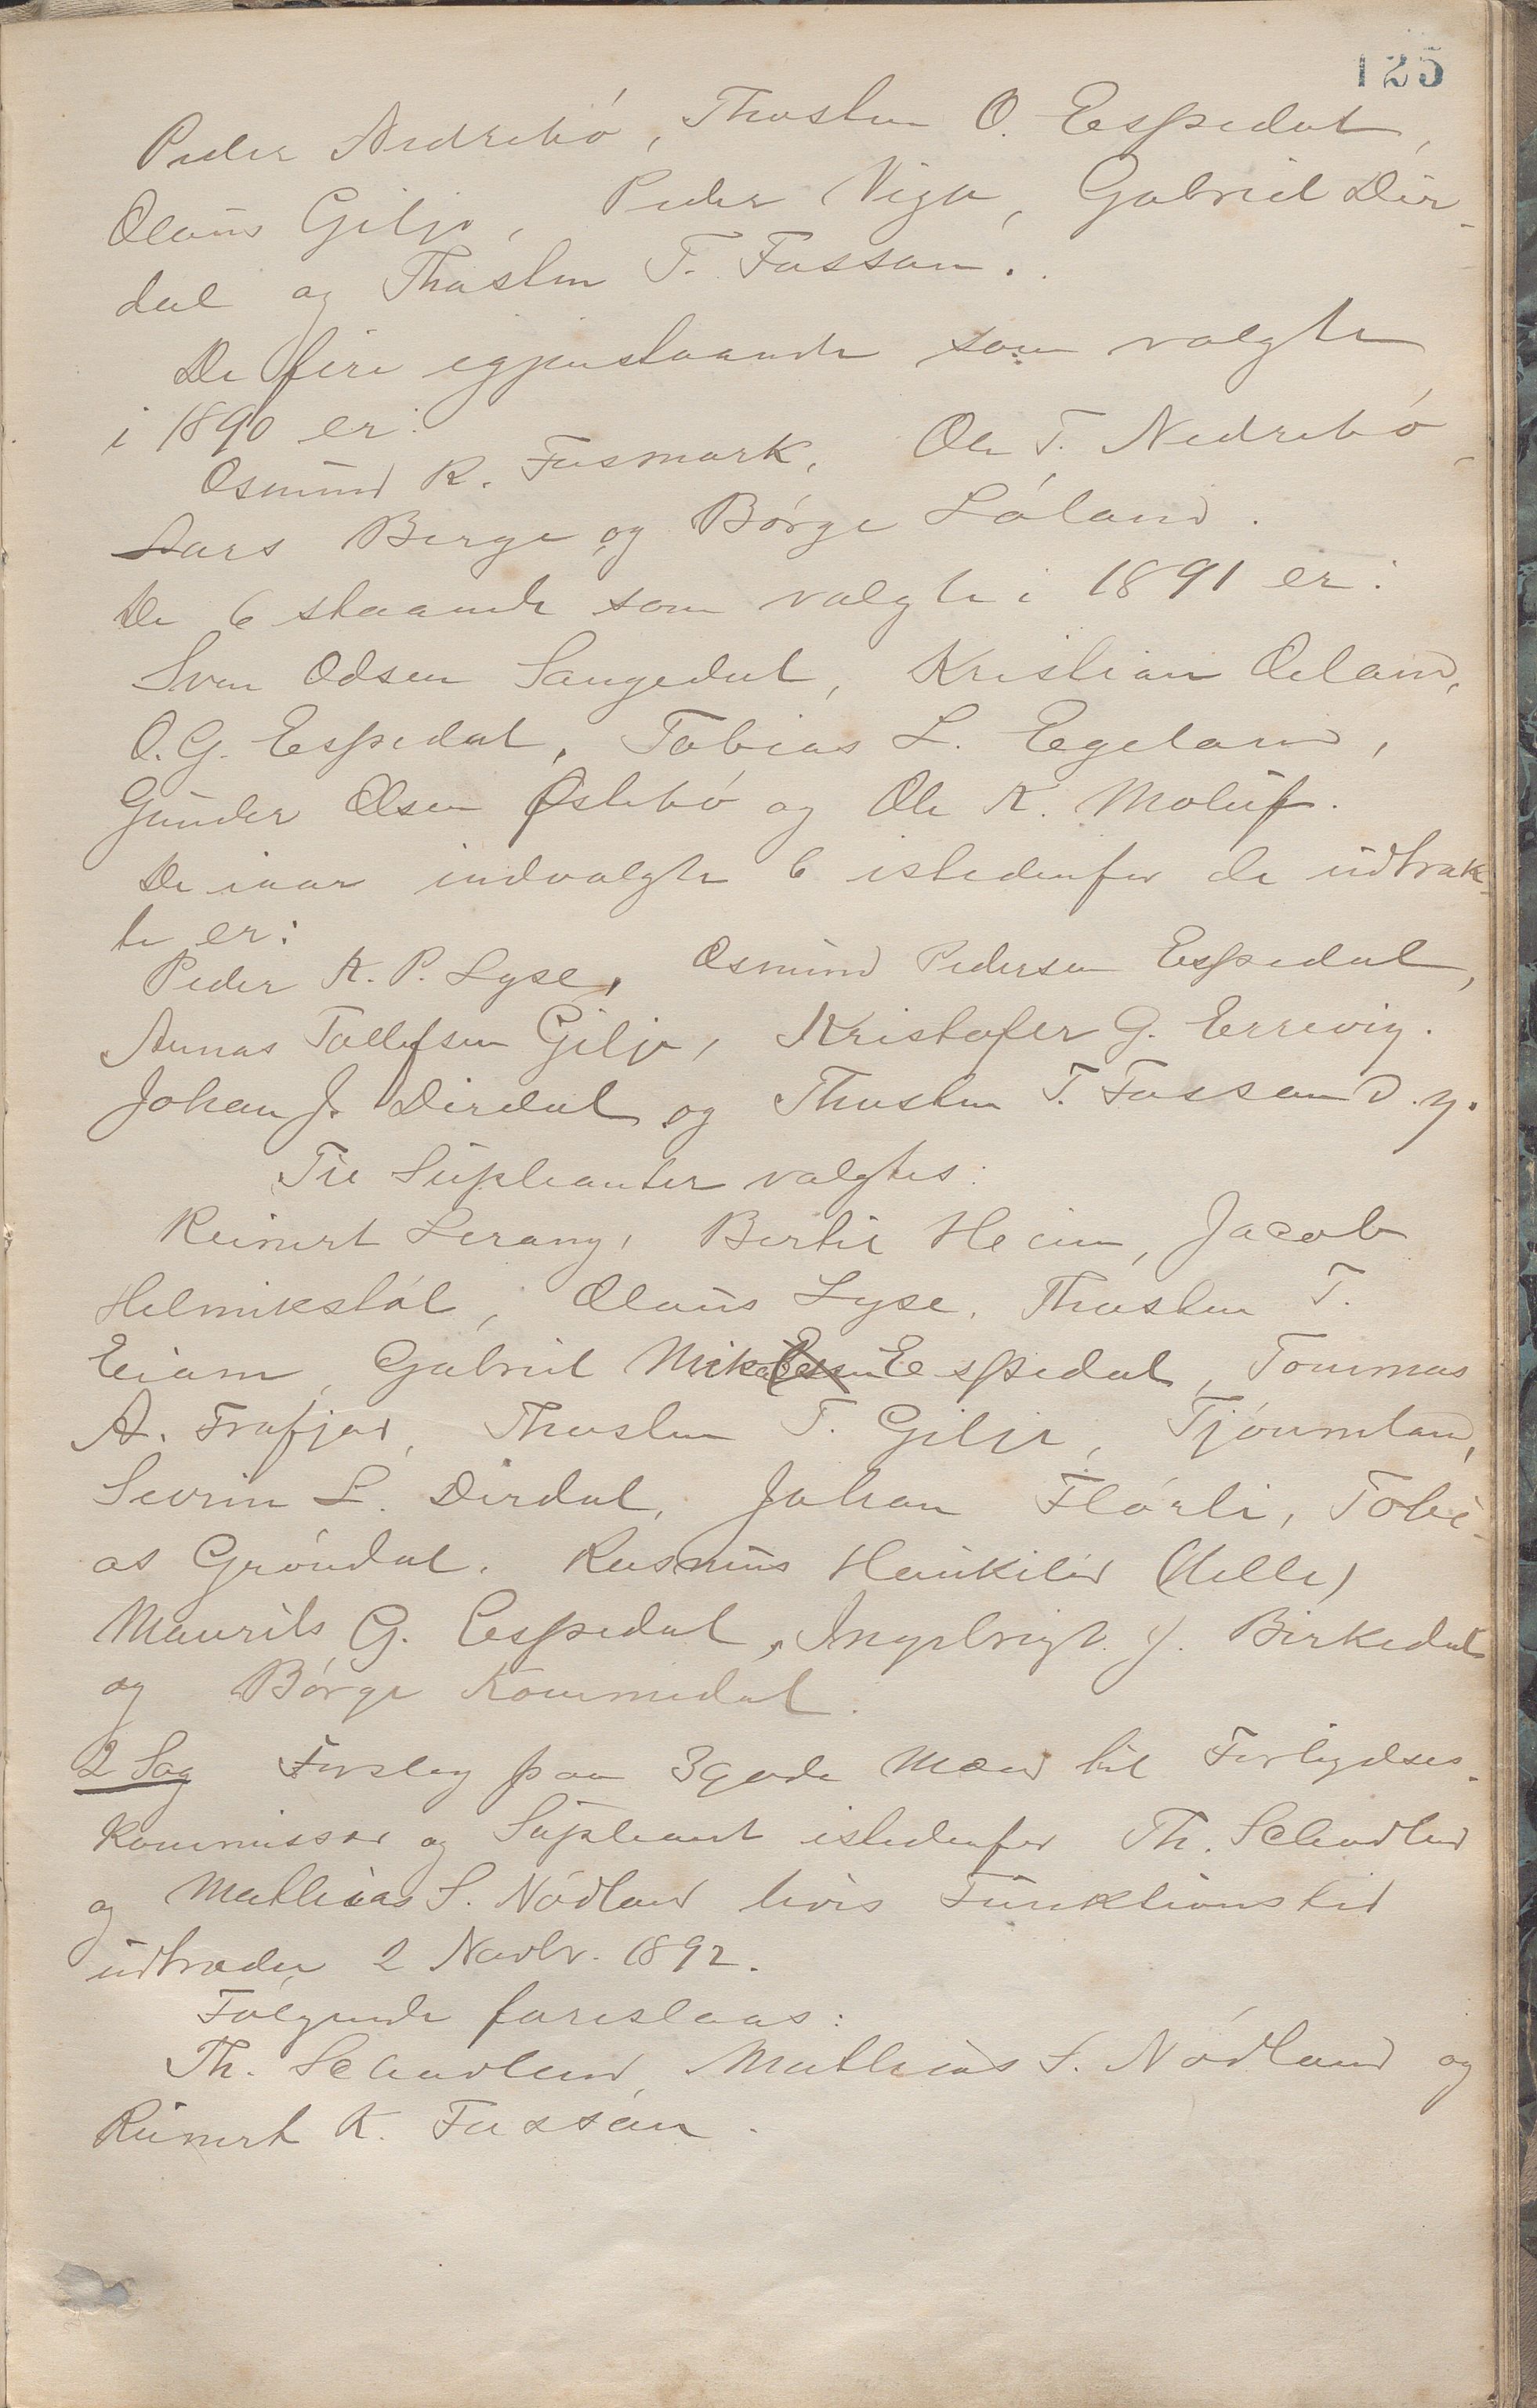 125
Peder Nedrebö, Thosten O. Espedal,
Olaus Gilje, Peder Viga, Gabriel Dir-
dal og Thosten T. Fossan.
De fire igjenstaaende som valgte
i 1890 er:
Osmund R. Fosmark, Ole T. Nedrebö,
Lars Berge og Börge Löland.
De 6 staaende som valgte i 1891 er:
Sven Odsen Sangedal, Kristian Oeland,
O. G. Espedal, Tobias L. Egeland,
Gunder Olsen Östebö og Ole K. Moluf.
De iaar indvalgte 6 istedenfor de udtrak-
te er:
Peder K. P. Lyse, Osmund Pedersen Espedal,
Aunas Tollefsen Gilje, Kristofer G. Errevig.
Johan J. Dirdal og Thosten T. Fossan d. y.
Til Supleanter valgtes:
Reinert Lerang, Bertil Heim, Jacob
Helmikstöl, Olaus Lyse, Thosten T.
Eiam, Gabriel Espedal, Tommas
A. Frafjord, Thosten T. Gilje, Tjöumland,
Sevrin L. Dirdal, Johan Flörli, Tobi-
as Gröndal. Rasmus Haukilid (Helle)
Maurits G. Espedal, Ingebrigt J. Birkedal
og Börge Kommedal.
2 Sag Forslag paa 3 gode Mænd til Forligelses-
kommissær og Supleant istedenfor Th. Schadland
og Mathias S. Nödland hvis Funktionstid
udtræder 2 Novbr. 1892.
Følgende foreslaas:
Th. Schadland, Mathias S. Nödland og
Reinert K. Fossan.